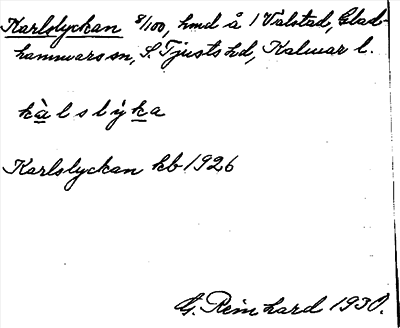 Karlslyckan 8/100, hmd å 1 Valstad, Glad-
hammars sn, S. Tjusts hd, Kalmar l.
kàlslỳka
Karlslyckan kb 1926
G. Reinhard 1930.